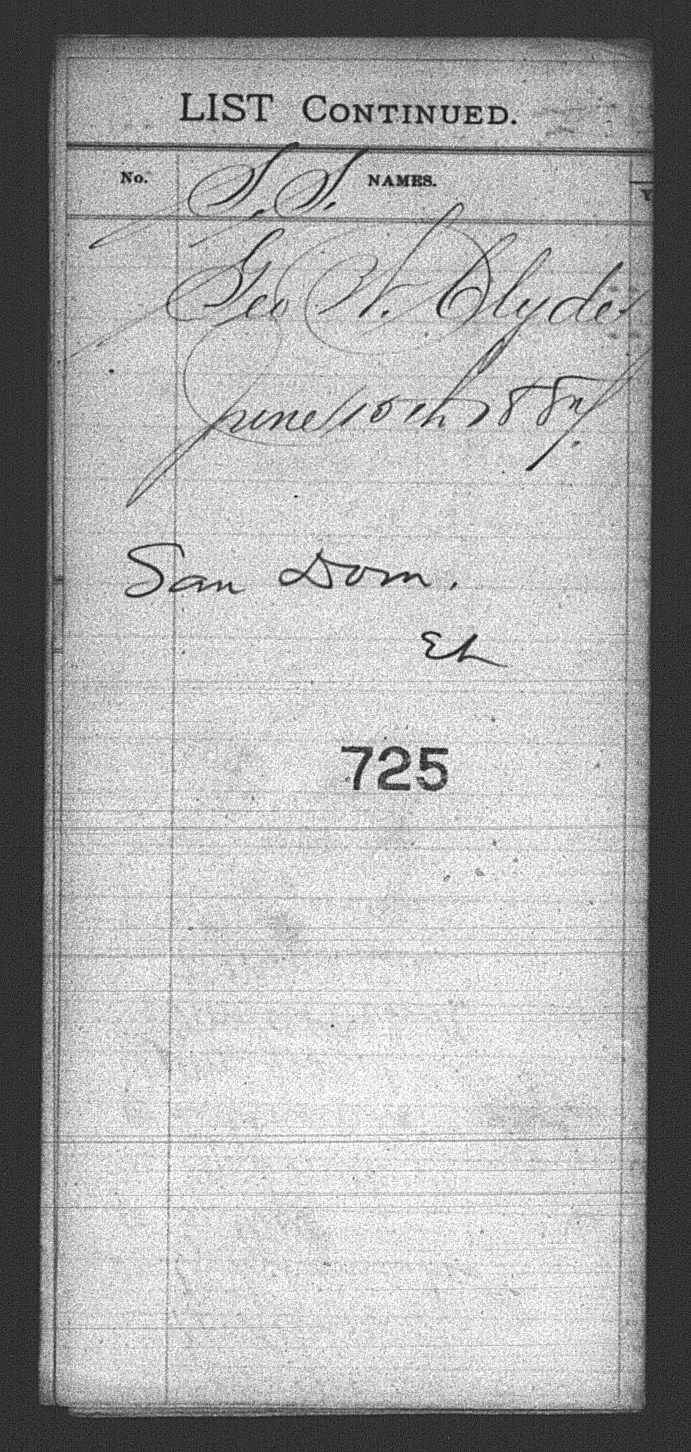 LIST CONTINUED.
No. S.S. NAMES.
Geo W. Clyde
June 10th 1887.
San Dom.
EL
725